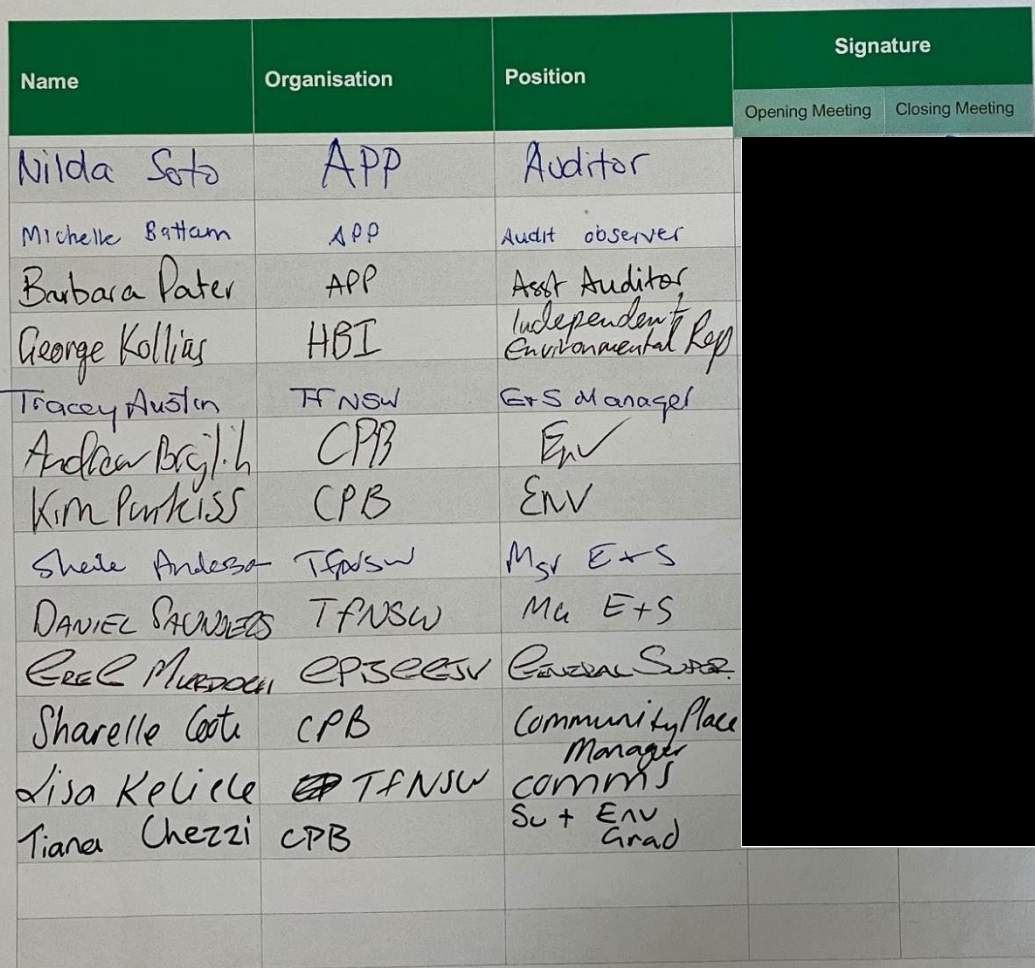 Name Organisation Position Signature
Opening Meeting Closing Meeting
Nilda Soto APP Auditor
Michelle Battam APP Audit observer
Barbara Pater APP Asst Auditor
George Kollias HBI Independent
Environmental Rep
Tracey Austin TfNSW E+S Manager
Andrew CPB Env
Kim Purkiss CPB ENV
Sheile TfNSW Mgr E+S
DANIEL SAUNDERS TfNSW E+S
MURDOCH GENERAL SUPER.
Sharelle CPB Community Place
Manager
Lisa TfNSW comms
Tiana Chezzi CPB Su + Env
Grad